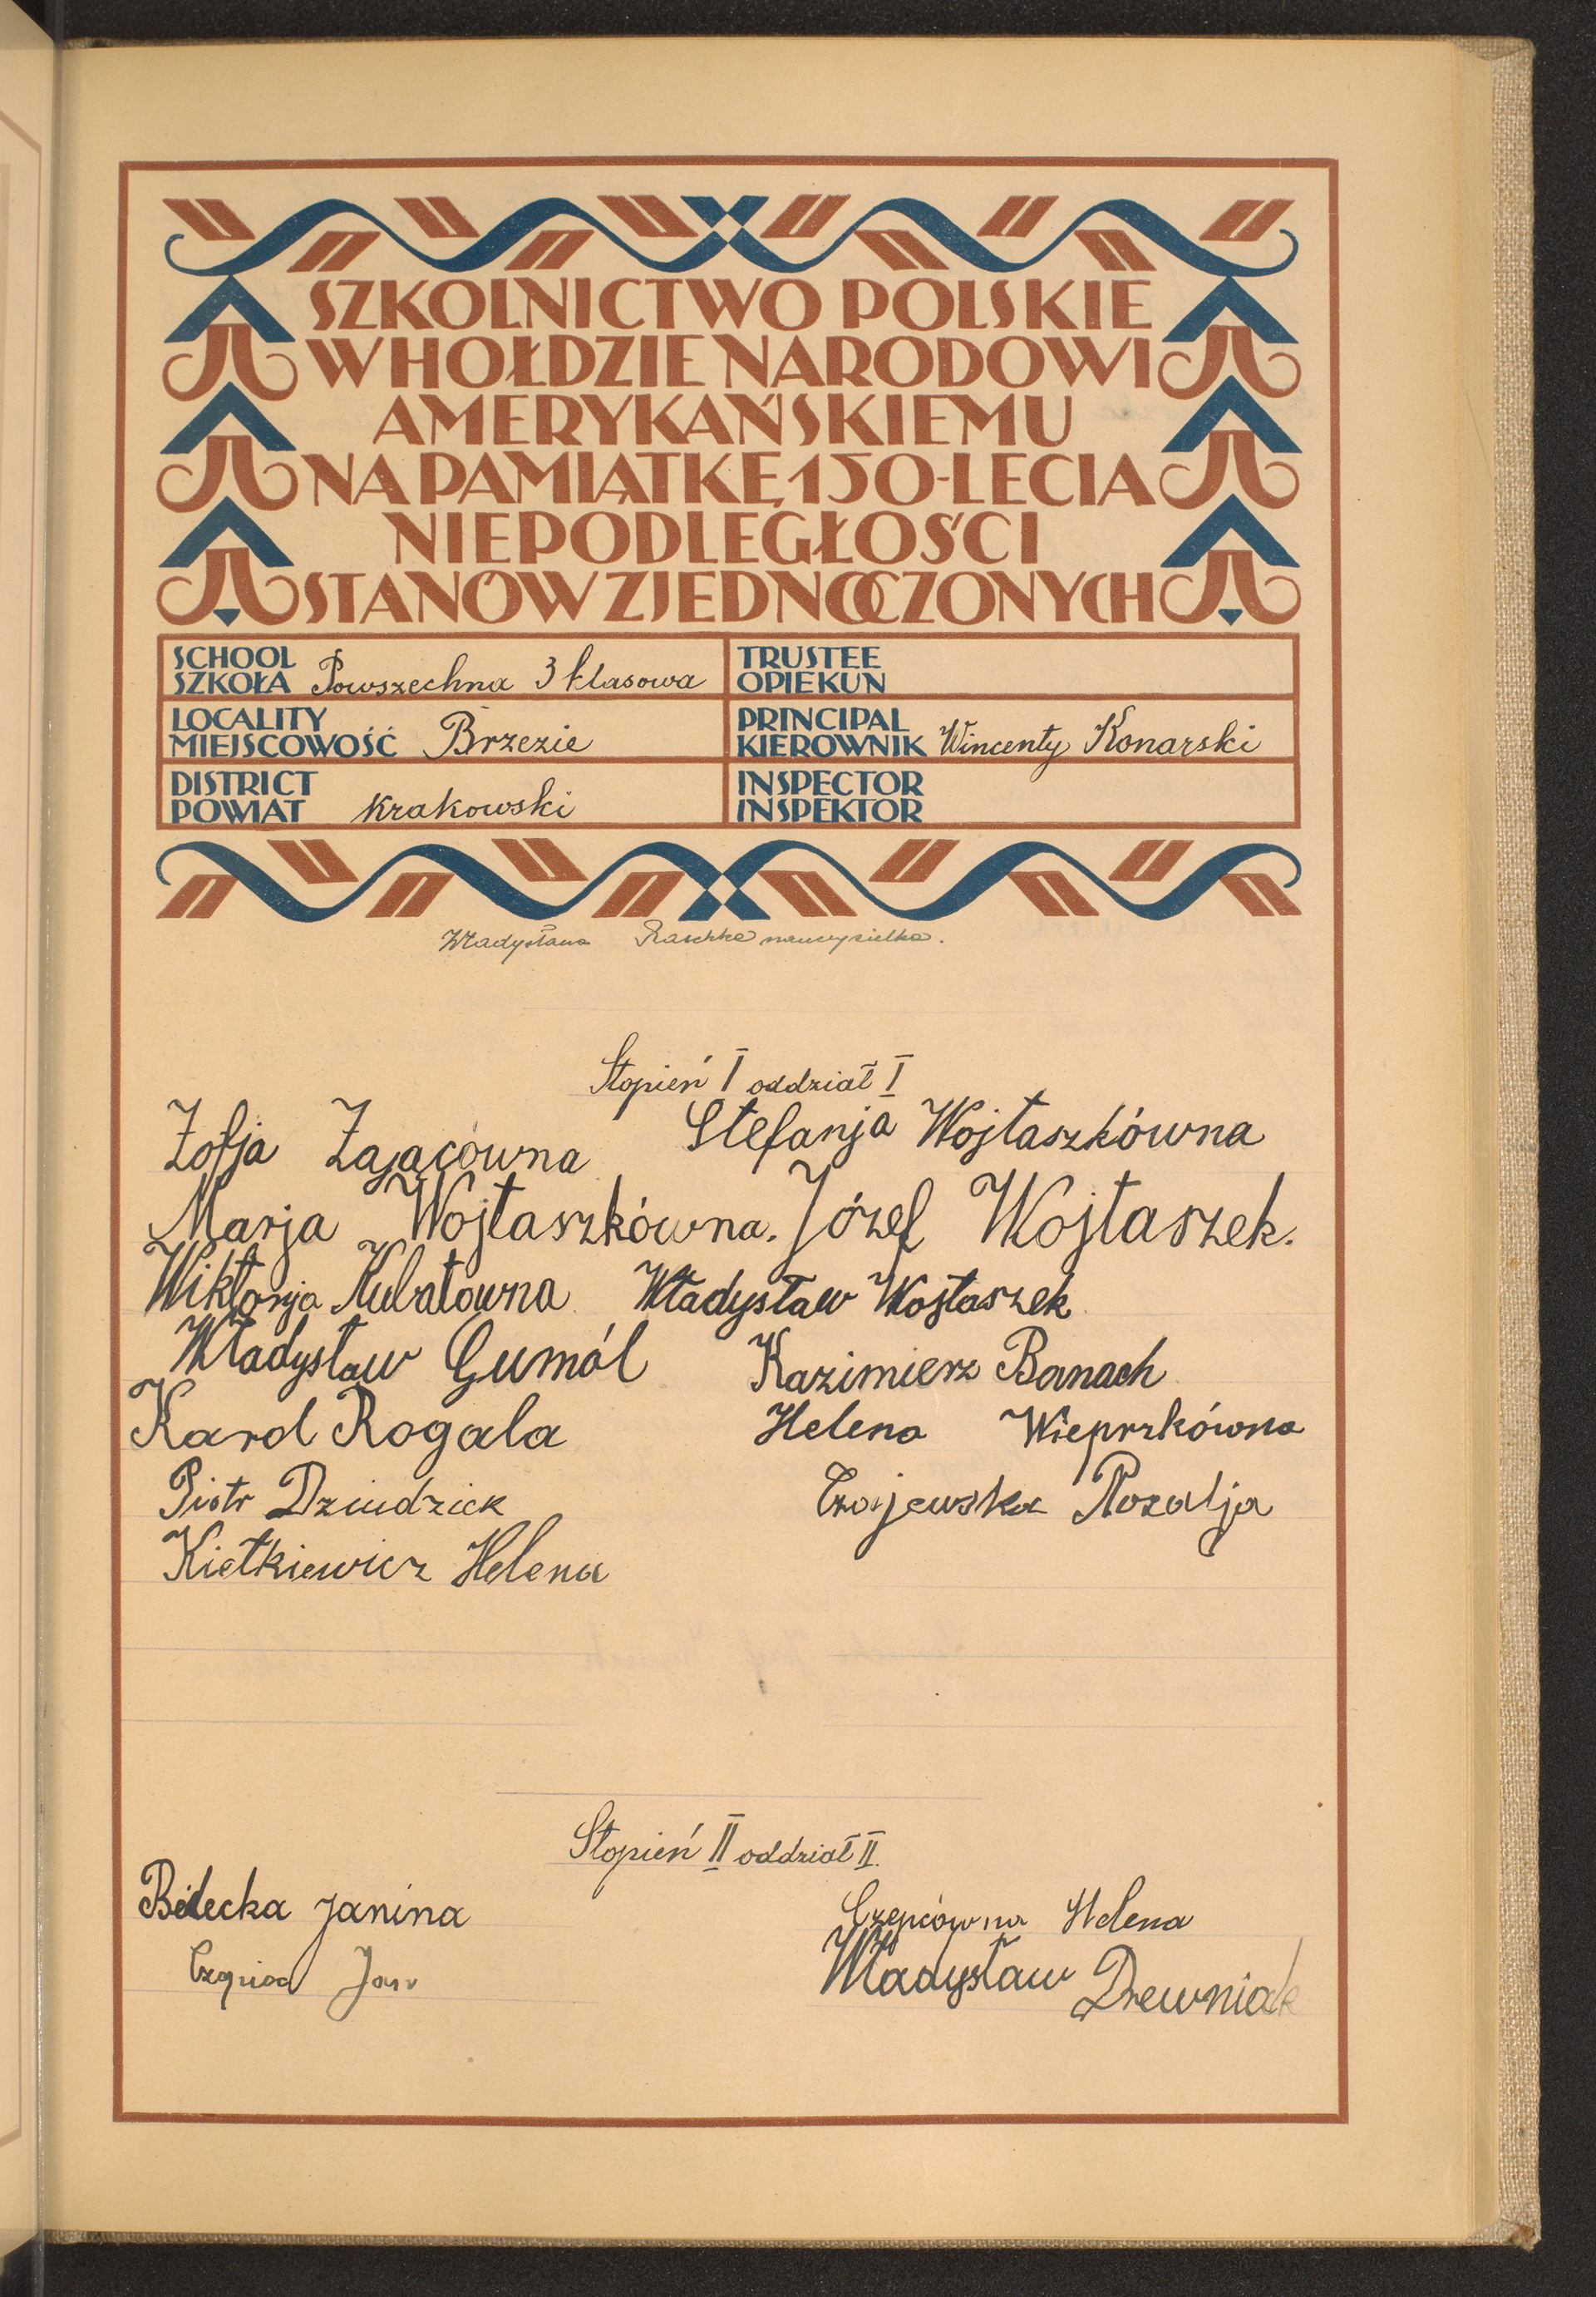 SZKOLNICTWO POLSKIE
W HOŁDZIE NARODOWI
AMERYKAŃSKIEMU
NA PAMIĄTKĘ 150-LECIA
NIEPODLEGŁOŚCI
STANÓW ZJEDNOCZONYCH
SCHOOL
SZKOŁA Powszechna 3 klasowa
TRUSTEE
OPIEKUN
LOCALITY
MIEJSCOWOŚĆ Brzezie
PRINCIPAL
KIEROWNIK Wincenty Konarski
DISTRICT
POWIAT Krakowski
INSPECTOR
INSPEKTOR
Władysława Raschke nauczycielka.
Stopień I oddział I
Zofja Zającówna Stefanja Wojtaszkówna
Marja Wojtaszkówna. Józef Wojtaszek.
Wiktorja Kubatówna Władysław Wojtaszek
Władysław Gumól Kazimierz Banach
Karol Rogala Helena Wieprzkówna
Piotr Dziudzick Czajewska Rozalja
Kietkiewicz Helena
Stopień II oddział II.
Bilecka Janina Czepcówna Helena
Jan Władysław Drewniak